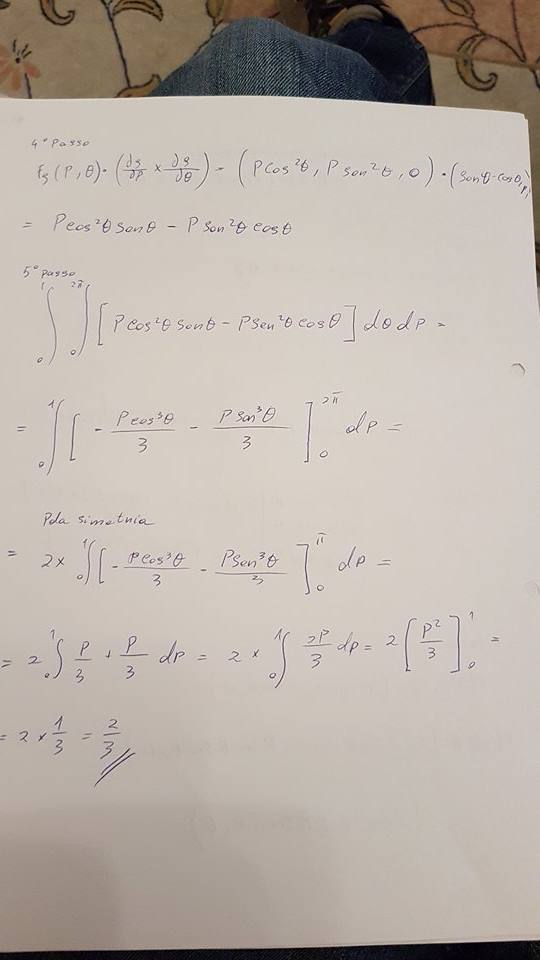 4º Passo
Fg(P,θ)·(∂g/∂P × ∂g/∂θ) = (Pcos²θ, Psen²θ, 0)·(senθ-cosθ,P)
= Pcos²θ senθ - Psen²θ cosθ
5º passo
∫₀¹ ∫₀^2π [Pcos²θ senθ - Psen²θ cosθ] dθ dP =
= ∫₀¹ [- Pcos³θ/3 - Psen³θ/3]₀^2π dP =
Pela simetria
= 2× ∫₀¹ [- Pcos³θ/3 - Psen³θ/3]₀^π dP =
= 2 ∫₀¹ P/3 + P/3 dP = 2 × ∫₀¹ 2P/3 dP = 2[P²/3]₀¹ =
= 2 × 1/3 = 2/3